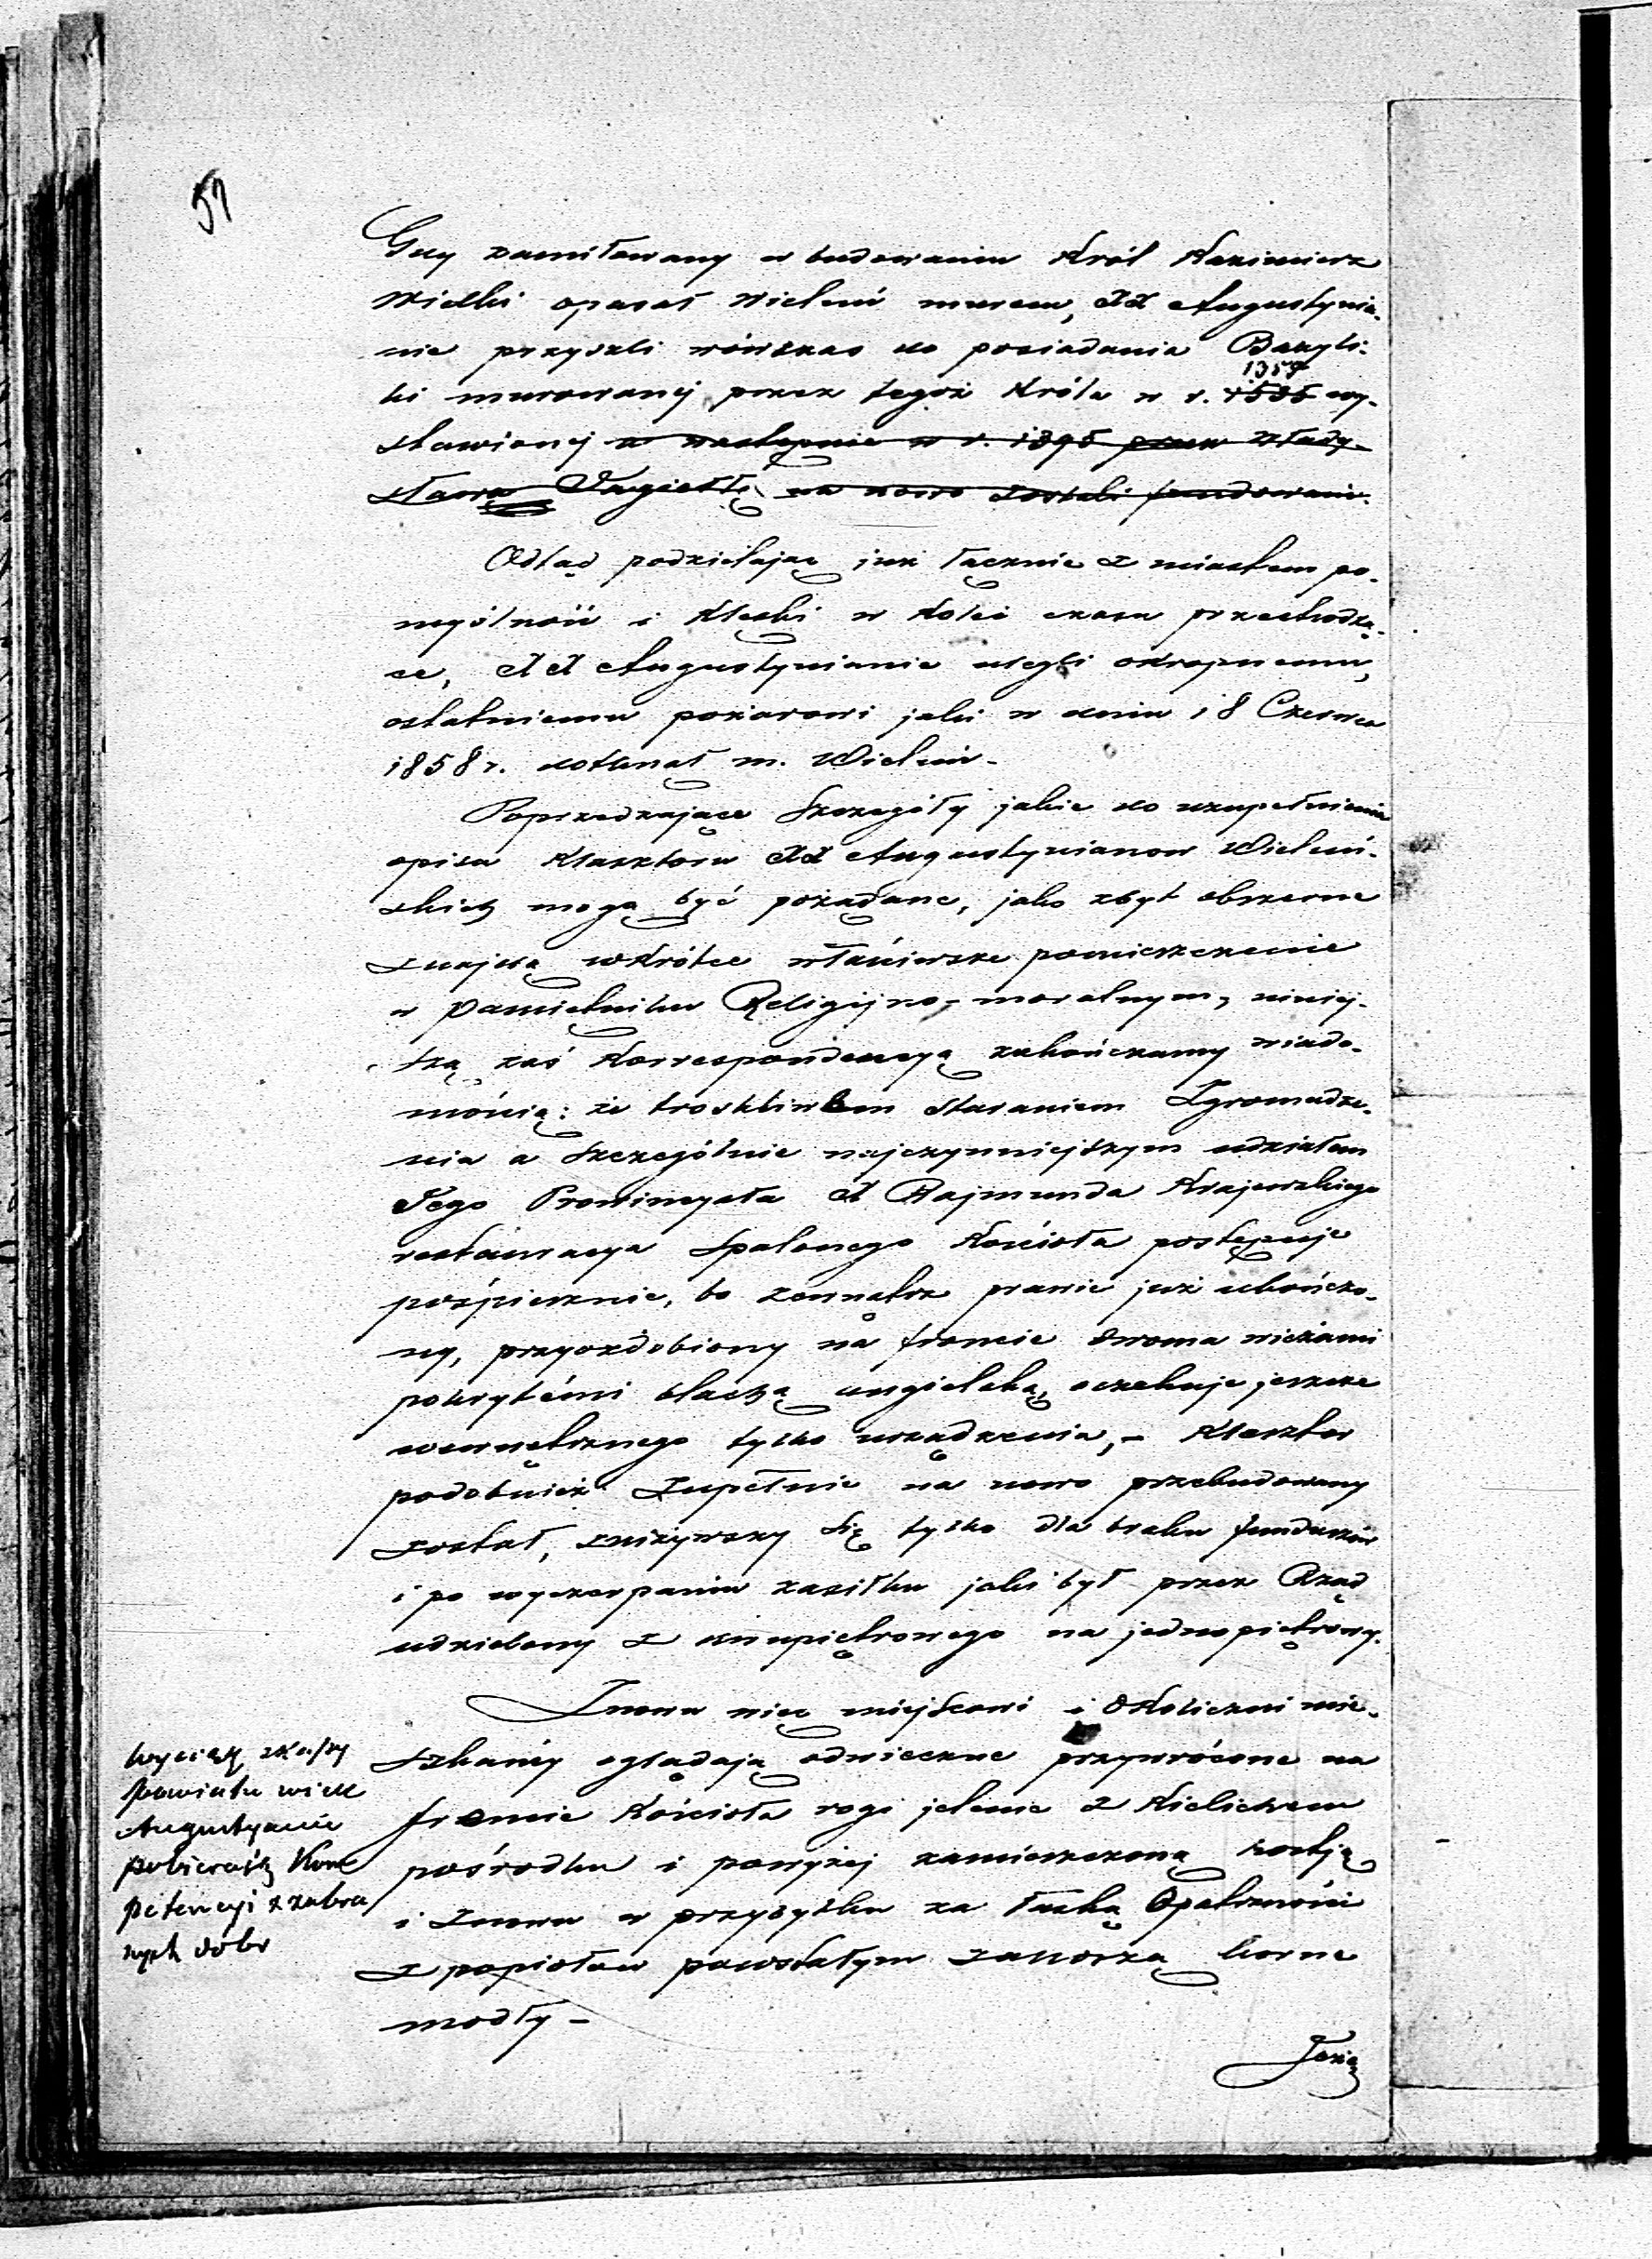 57
Gdy zamiłowany w budowaniu Król Kazimierz
Wielki opasał Wieluń murem, XX Augustynia-
nie przyszli wówczas do posiadania Bazyli-
1357
ki murowanej przez tegoż Króla w r. wy-
stawionej a następnie w r. 1395 przez Włady-
sława Jagiełłę na nowo zostali fundowani.
Odtąd podzielając już łącznie z miastem po-
myślność i klęski w kolei czasu przechodzą-
ce, XX Augustynianie ulegli okropnemu,
ostatniemu pożarowi jaki w dniu 18 Czerwca
1858 r. dotknął m. Wieluń -
Poprzedzające szczegóły jakie do uzupełnienia
opisu Klasztoru XX Augustynianow Wieluń-
skich mogą być pożądane, jako zbyt obszerne
znajdą wkrótce właściwsze pomieszczenie
w Pamiętniku Religijno-moralnym, niniej-
szą zaś Korrespondencyą zakończamy wiado-
mością: że troskliwem staraniem Zgromadze-
nia a szczególnie najczynniejszym udziałem
Jego Prowincyała X Rajmunda Krajewskiego
restauracya spalonego Kościoła postępuje
pośpiesznie, bo zewnątrz prawie już ukończo-
ny, przyozdobiony na froncie dwoma wieżami
pokrytémi blachą angielską, oczekuje jeszcze
wewnętrznego tylko urządzenia, - Klasztor
podobnież zupełnie na nowo przebudowany
został, zniżywszy się tylko dla braku funduszów
i po wyczerpaniu zasiłku jaki był przez Rząd
udzielony z dwupiętrowego na jednopiętrowy.
Znowu więc miejscowi i okoliczni mie-
szkańcy oglądają odwieczne przywrócone na
froncie Kościoła rogi jelenie z Kielichem
pośrodku i powyżej zamieszczoną hostją
i znowu w przybytku za łaską Opatrzności
z popiołów powstałym zanoszą korne
modły -
wyciąg z Kassy
powiatu wiel
Augustyanie
pobierają Kom
petencyi z zabra
nych dóbr